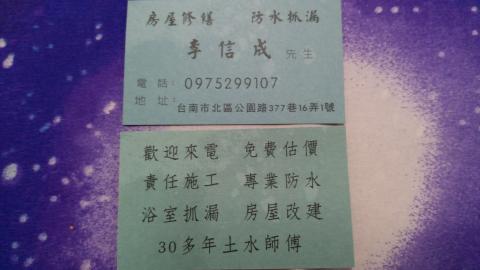 房屋修繕 防水抓漏
李信成 先生
電話: 0975299107
地址: 台南市北區公園路377巷16弄1號
歡迎來電 免費估價
責任施工 專業防水
浴室抓漏 房屋改建
30多年土水師傅